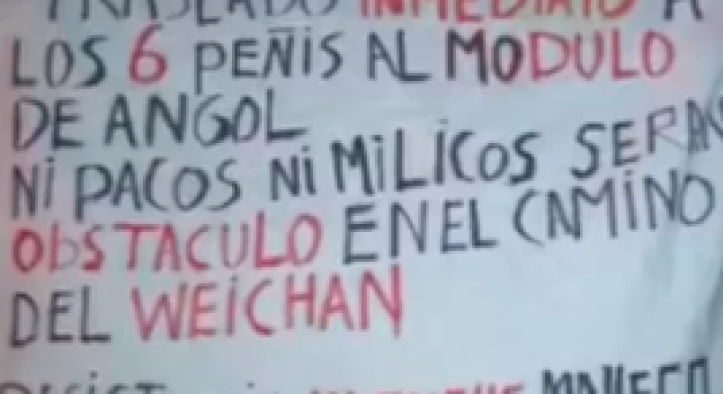 TRASLADO INMEDIATO A
LOS 6 PEÑIS AL MODULO
DE ANGOL
Ni PACOS Ni MiLiCOS SERA
ObSTACULO EN EL CAMINO
DEL WEiCHAN
MALLECO